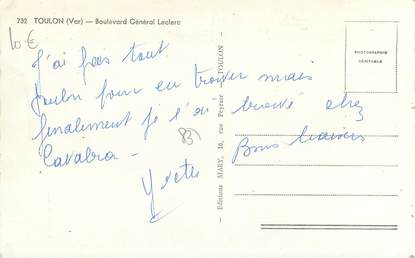 732 TOULON (Var) — Boulevard Général Leclerc
10 €
J'ai fais tout
Toulon pour en trouver mais
finalement je l'ai trouvé chez
Cavalra -
Bons baisers
Yvette
83
— Editions MARY, 16, rue Peyresc — TOULON —
PHOTOGRAPHIE
VÉRITABLE